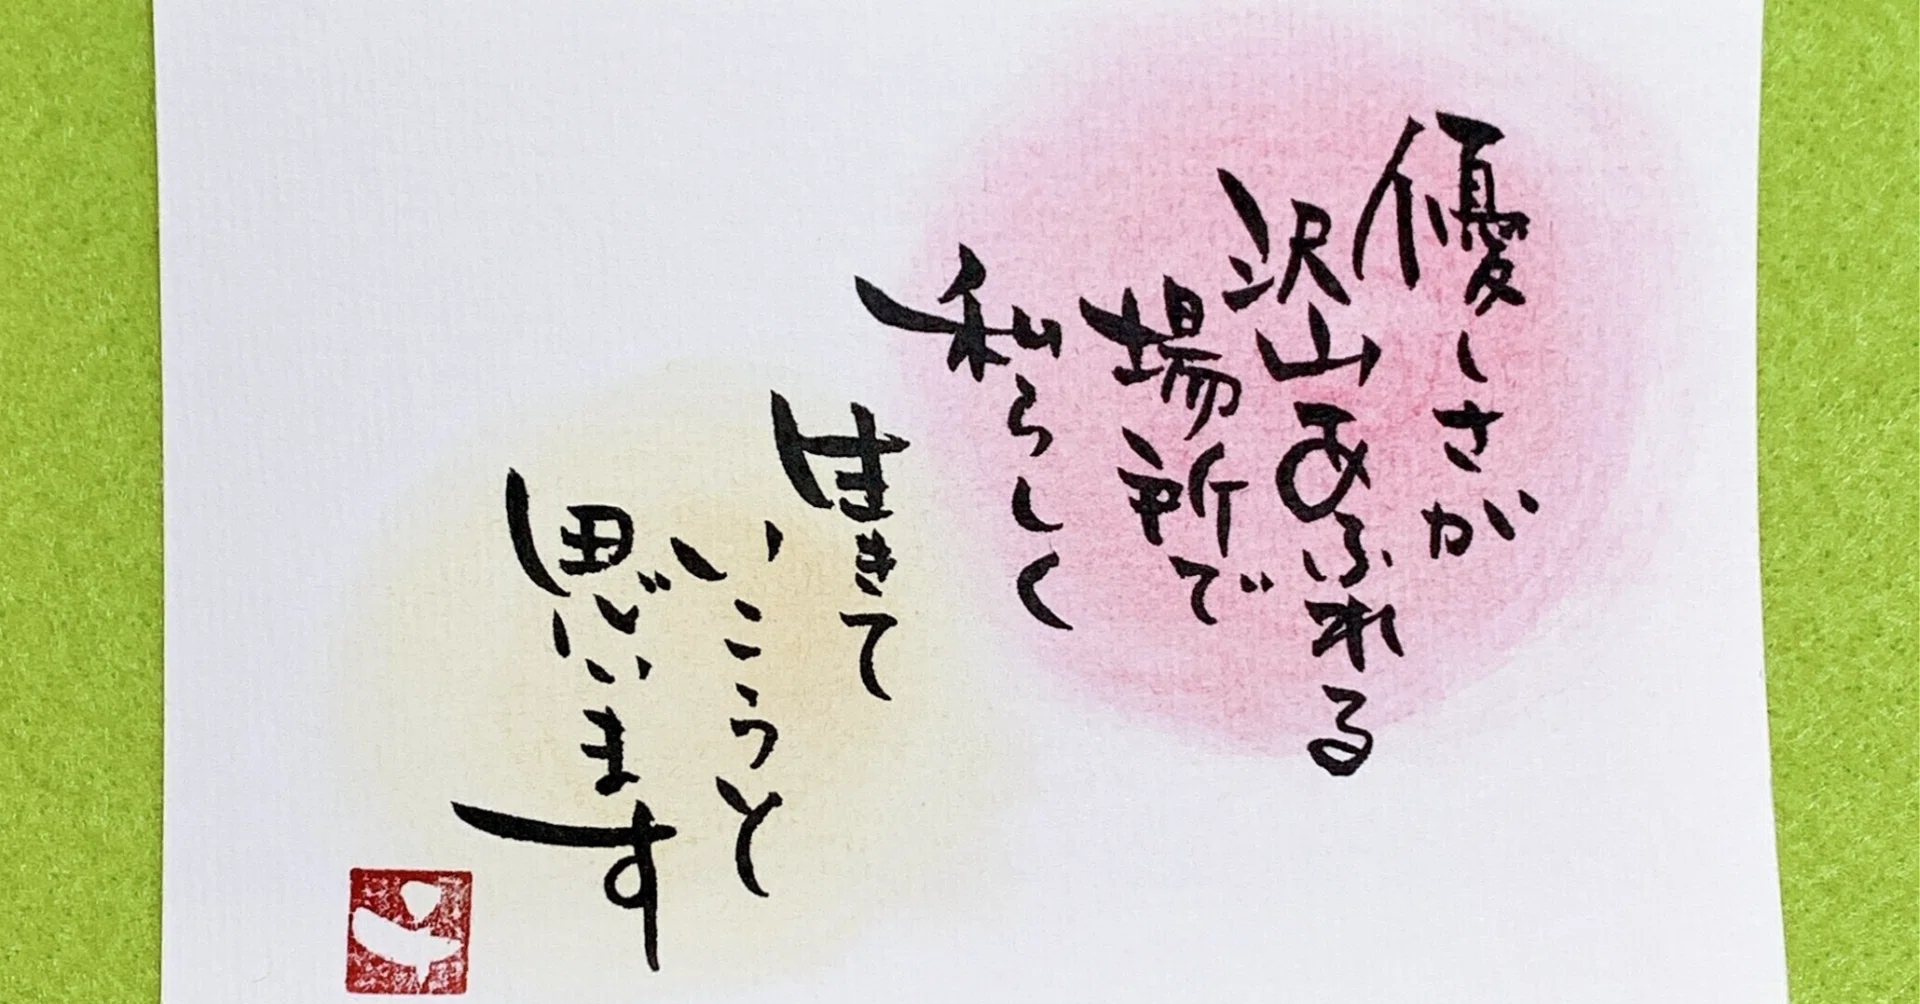 優しさが
沢山あふれる
場所で
私らしく
生きて
いこうと
思います